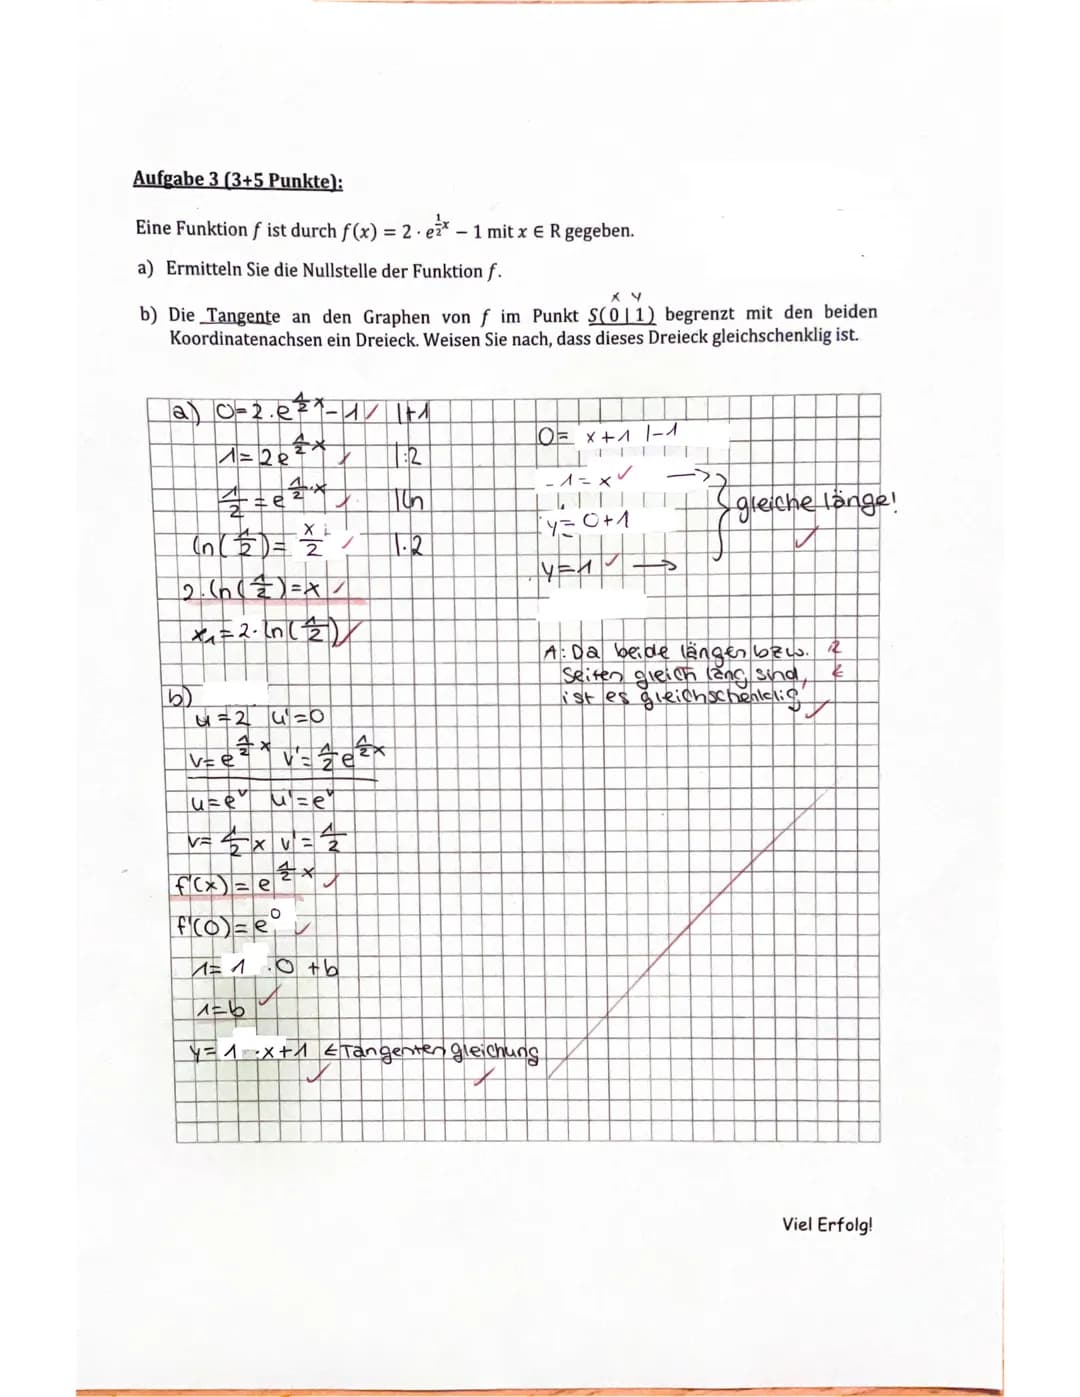 Aufgabe 3 (3+5 Punkte):
Eine Funktion f ist durch f(x) = 2 · e^(1/2 x) − 1 mit x ∈ R gegeben.
a) Ermitteln Sie die Nullstelle der Funktion f.
x y
b) Die Tangente an den Graphen von f im Punkt S(0 | 1) begrenzt mit den beiden
Koordinatenachsen ein Dreieck. Weisen Sie nach, dass dieses Dreieck gleichschenklig ist.
a) 0=2·e^(1/2 x)-1 |+1
1=2e^(1/2 x) |:2
1/2=e^(1/2·x) |ln
ln(1/2)=x/2 |·2
2·ln(1/2)=x
x₁=2·ln(1/2)
b)
u=2 u'=0
v=e^(1/2 x) v'=1/2e^(1/2 x)
u=e^v u'=e^v
v=1/2x v'=1/2
f'(x)=e^(1/2 x)
f'(0)=e^0
1=1·0+b
1=b
y=1·x+1 ←Tangentengleichung
0=x+1 |-1
-1=x →
gleiche länge!
y=0+1
y=1 →
A: Da beide längen bzw.
Seiten gleich lang sind,
ist es gleichschenklig
Viel Erfolg!